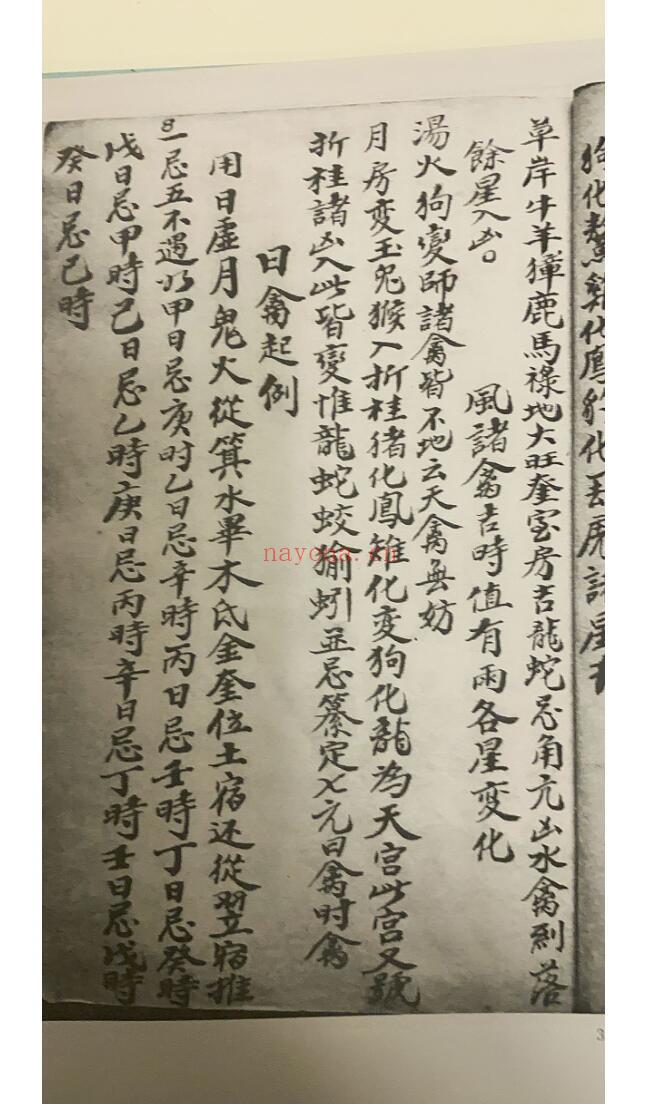 狗化鰲雞化鷹豹化
草岸牛羊獐鹿馬祿地大旺奎室房吉龍蛇忌角亢凶水禽到落
餘星入凶。 風諸禽吉時值有雨各星变化
湯火狗变師諸禽皆不地云天禽無妨
月房变玉兔猴入折桂猪化鳳雉化变狗化龍為天宮此宮又號
折桂諸凶入此皆变惟龍蛇蛟㺄蚓並忌纂定七元日禽时禽
日禽起例
用日虛月鬼火從箕水畢木氐金奎位土宿还從翌宿推
8一忌五不遇以甲日忌庚时乙日忌辛時丙日忌壬時丁日忌癸時
戊日忌甲時己日忌乙時庚日忌丙時辛日忌丁時壬日忌戊時
癸日忌己時
nayona.cn
3